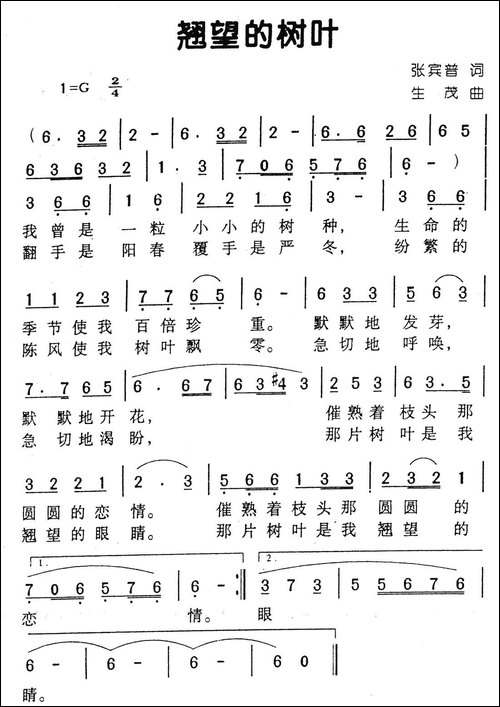 翘望的树叶
张宾普 词
1=G 2/4
生 茂 曲
( 6. 32 | 2 - | 6. 32 | 2 - | 6.6 26 | 6 65
636 32 | 1. 3 | 706 576 | 6 - )
3 66 | 1 6 | 2 21 6 | 3 - | 3 66
我曾是 一粒 小小的树 种， 生命的
翻手是 阳春 覆手是严 冬，纷繁的
11 23 | 77 65 | 6 - | 6 33 | 5 63
季节使我 百倍珍 重。 默默地 发芽，
陈风使我 树叶飘 零。 急切地 呼唤，
7.7 65 | 6. 67 | 63 #4 3 | 25 3 | 63. 5
默 默地开花， 催熟着 枝头 那
急 切地渴盼， 那片树 叶是 我
32 21 | 2. 3 | 566 133 | 2 21 | 2321
圆圆的恋情。 催熟着枝头那 圆圆 的
翘望的眼睛。 那片树叶是我 翘望 的
1. 2.
706 576 | 6 - :| 3 73 | 5 5676
恋 情。 眼
6 - | 6 - | 6 - | 6 - ‖
睛。